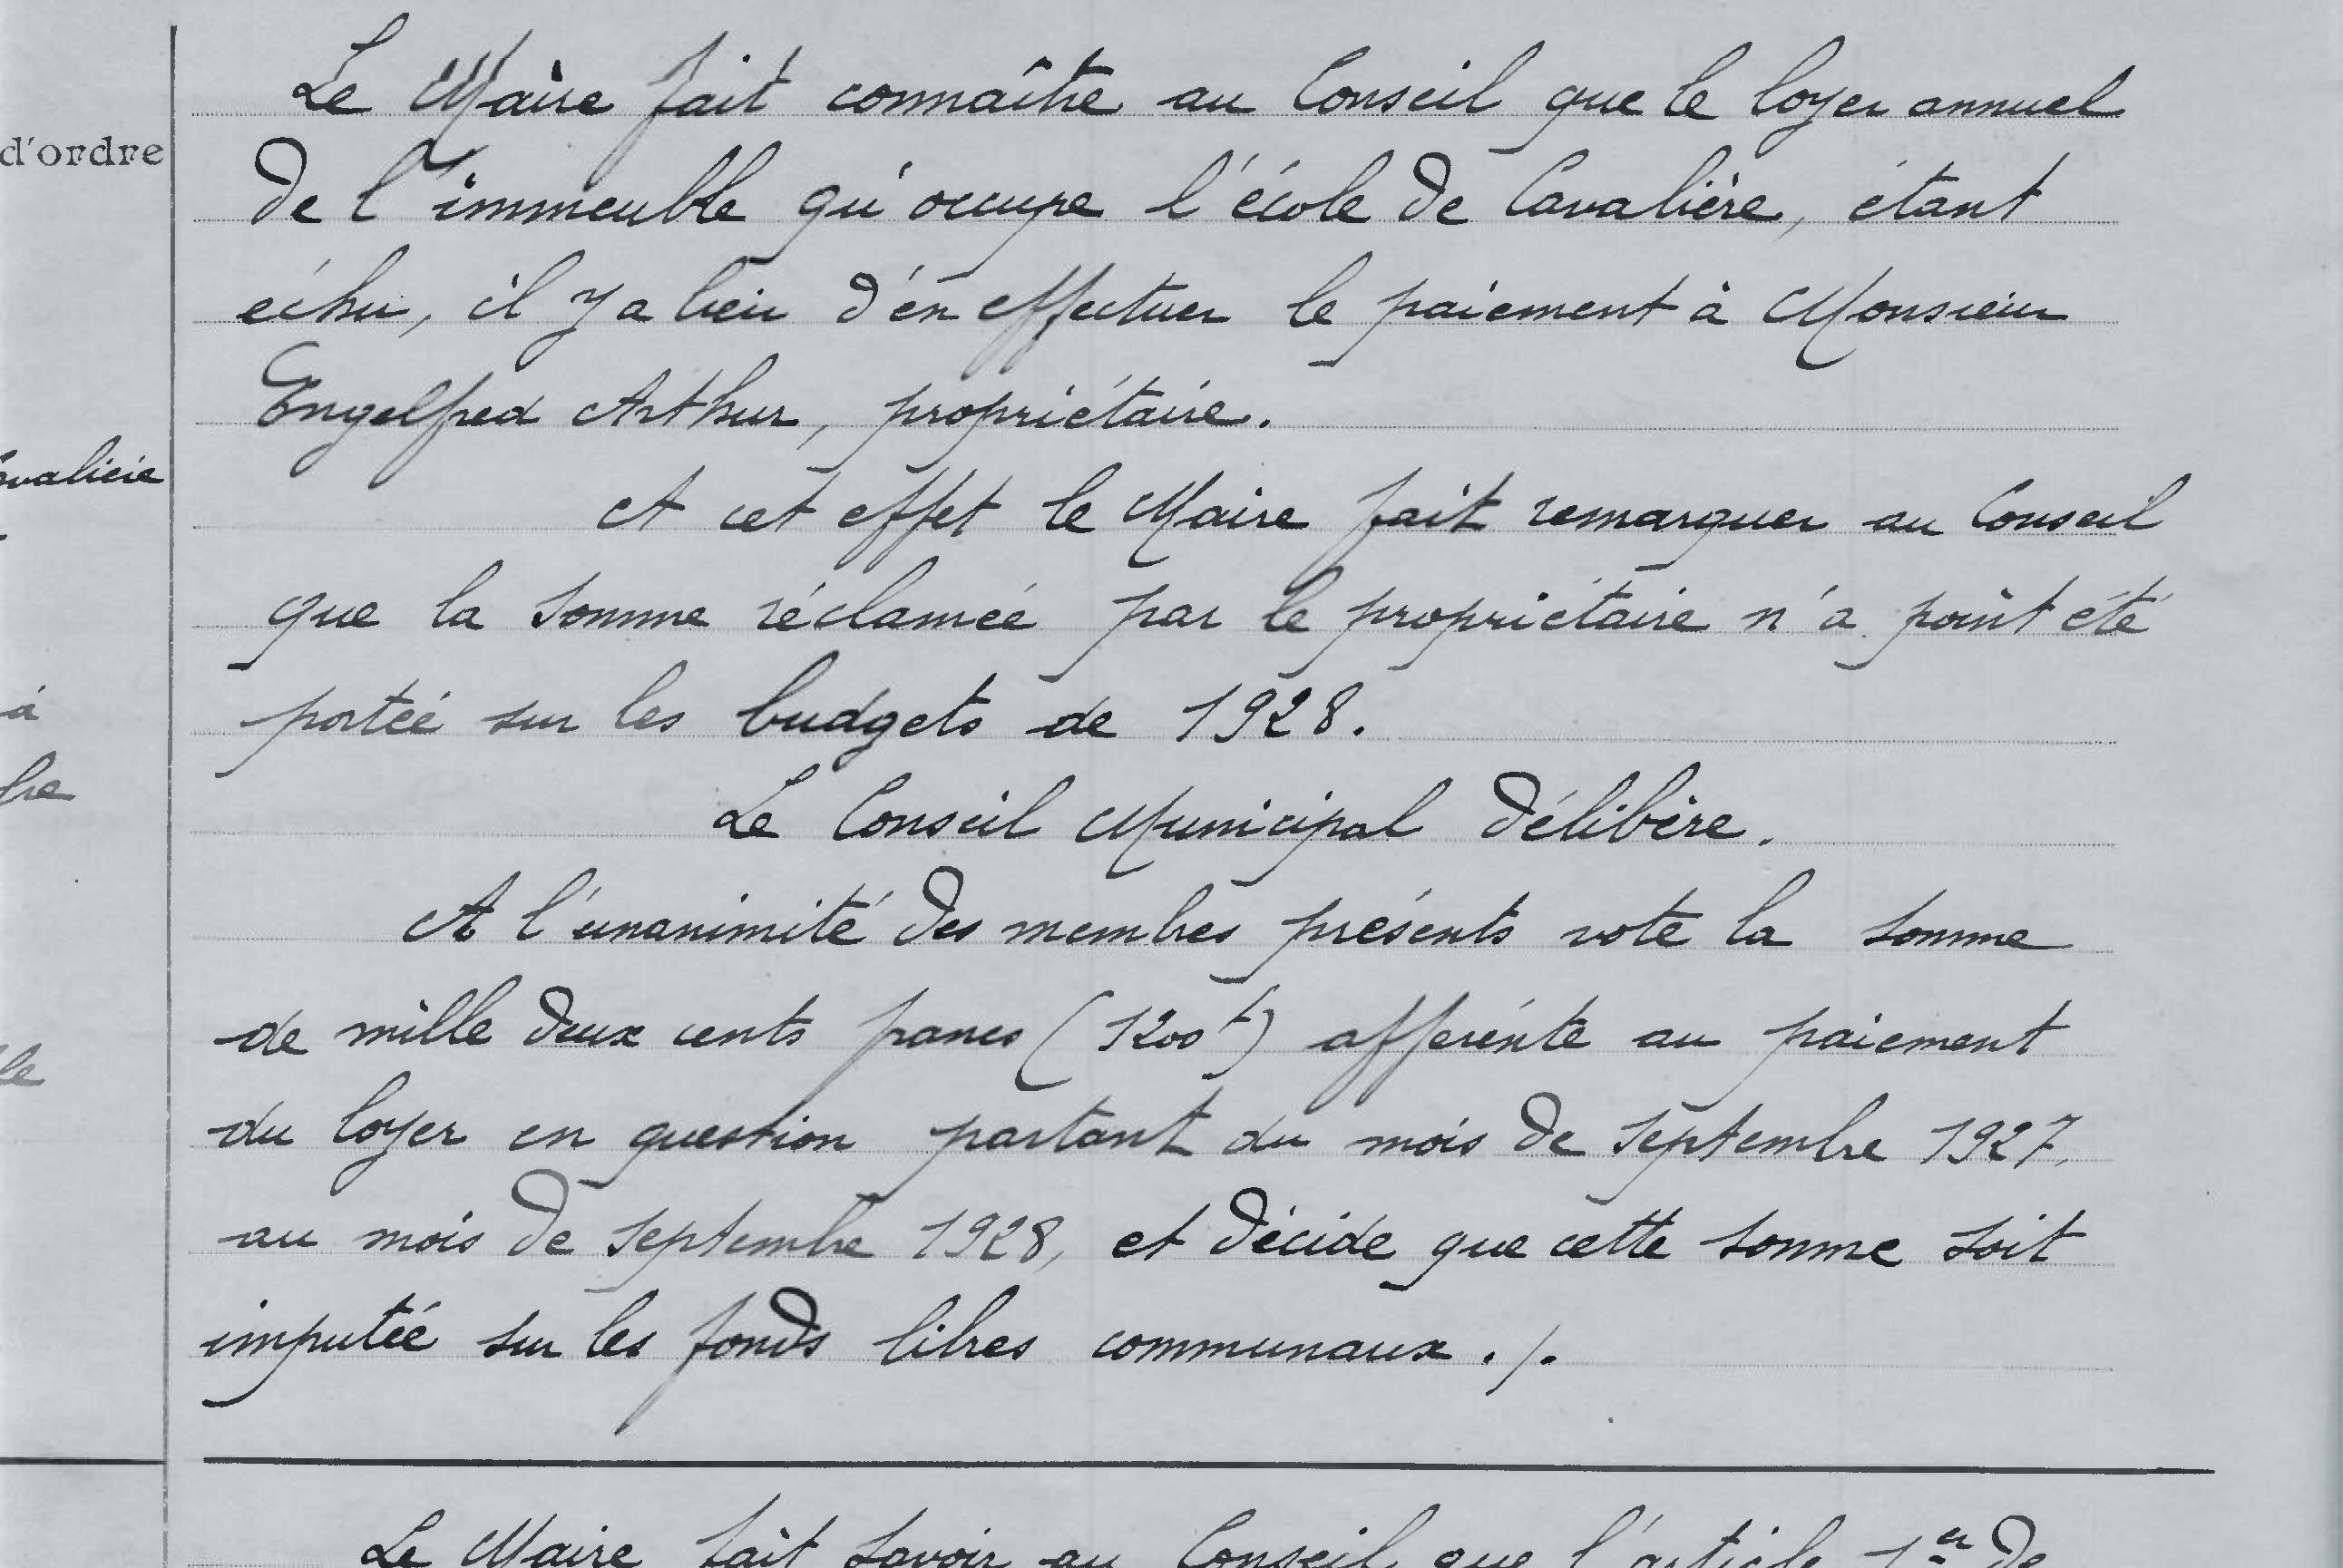 Le Maire fait connaître au Conseil que le loyer annuel
d'ordre
de l'immeuble qu'occupe l'école de Cavalière, étant
échu, il y a lieu d'en effectuer le paiement à Monsieur
Engelfred Arthur, propriétaire.
valière
A cet effet le Maire fait remarquer au Conseil
que la somme réclamée par le propriétaire n'a point été
à
portée sur les budgets de 1928.
Le Conseil Municipal délibère.
A l'unanimité des membres présents vote la somme
de mille deux cents francs (1200f) afférente au paiement
le
du loyer en question partant du mois de septembre 1927,
au mois de septembre 1928, et décide que cette somme soit
imputée sur les fonds libres communaux ./.
Le Maire fait savoir au Conseil que l'article 1er de